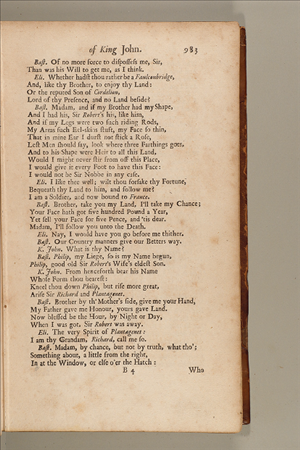 of King John. 983
Bast. Of no more force to dispossess me, Sir,
Than was his Will to get me, as I think.
Eli. Whether hadst thou rather be a Faulconbridge,
And, like thy Brother, to enjoy thy Land:
Or the reputed Son of Cordelion,
Lord of thy Presence, and no Land beside?
Bast. Madam, and if my Brother had my Shape,
And I had his, Sir Robert's his, like him,
And if my Legs were two such riding Rods,
My Arms such Eel-skins stuft, my Face so thin,
That in mine Ear I durst not stick a Rose,
Lest Men should say, look where three Farthings goes,
And to his Shape were Heir to all this Land,
Would I might never stir from off this Place,
I would give it every Foot to have this Face:
I would not be Sir Nobbe in any case.
Eli. I like thee well; wilt thou forsake thy Fortune,
Bequeath thy Land to him, and follow me?
I am a Soldier, and now bound to France.
Bast. Brother, take you my Land, I'll take my Chance;
Your Face hath got five hundred Pound a Year,
Yet sell your Face for five Pence, and 'tis dear.
Madam, I'll follow you unto the Death.
Eli. Nay, I would have you go before me thither.
Bast. Our Country manners give our Betters way.
K. John. What is thy Name?
Bast. Philip, my Liege, so is my Name begun,
Philip, good old Sir Robert's Wife's eldest Son.
K. John. From henceforth bear his Name
Whose Form thou bearest:
Kneel thou down Philip, but rise more great,
Arise Sir Richard and Plantagenet.
Bast. Brother by th' Mother's side, give me your Hand,
My Father gave me Honour, yours gave Land.
Now blessed be the Hour, by Night or Day,
When I was got, Sir Robert was away.
Eli. The very Spirit of Plantagenet:
I am thy Grandam, Richard, call me so.
Bast. Madam, by chance, but not by truth, what tho';
Something about, a little from the right,
In at the Window, or else o'er the Hatch:
B 4 Who